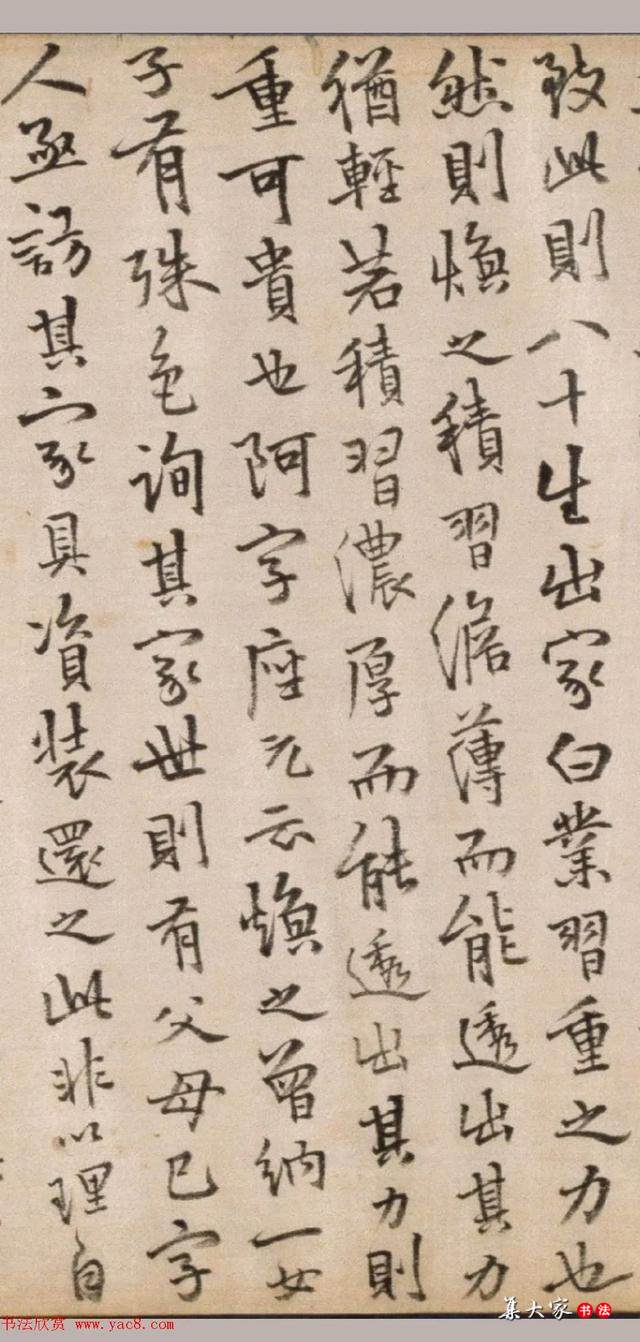 致此則八十生出家白業習重之力也
然則煥之積習澹薄而能透出其力
猶輕若積習濃厚而能透出其力則
重可貴也阿字座元云煥之曾納一女
子有殊色詢其家世則有父母已字
人亟訪其家具資裝還之此非以理自
集大家书法
书法欣赏 www.yac8.com